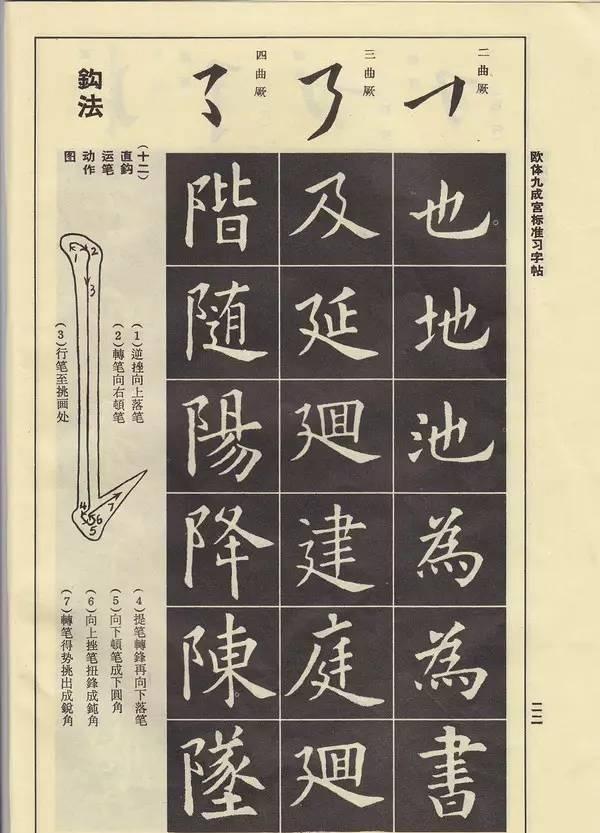 欧体九成宫标准习字帖
二二
二曲厥
三曲厥
四曲厥
也地池為為書
及延廻建庭廻
階随陽降陳墜
鈎法
（十二）
直鈎
运笔
动作
图
1
2
3
4
5
5
6
5
7
（1）逆挫向上落笔
（2）轉笔向右頓笔
（3）行笔至挑画处
（4）提笔轉鋒再向下落笔
（5）向下頓笔成下圓角
（6）向上挫笔扭鋒成鈍角
（7）轉笔得势挑出成銳角